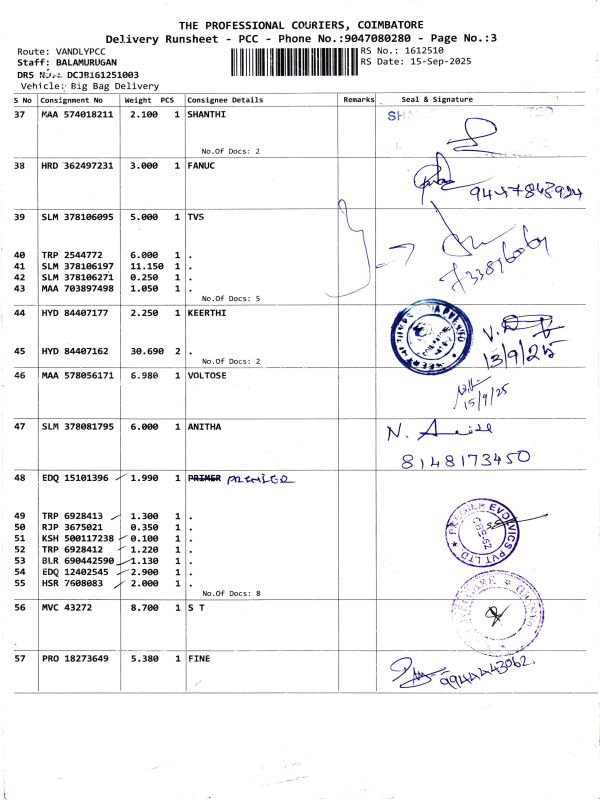 THE PROFESSIONAL COURIERS, COIMBATORE
Delivery Runsheet - PCC - Phone No.:9047080280 - Page No.:3
Route: VANDLYPCC RS No.: 1612510
Staff: BALAMURUGAN RS Date: 15-Sep-2025
DRS No.: DCJB161251003
Vehicle: Big Bag Delivery
S No Consignment No Weight PCS Consignee Details Remarks Seal & Signature
37 MAA 574018211 2.100 1 SHANTHI
No.Of Docs: 2
38 HRD 362497231 3.000 1 FANUC
39 SLM 378106095 5.000 1 TVS
40 TRP 2544772 6.000 1 .
41 SLM 378106197 11.150 1 .
42 SLM 378106271 0.250 1 .
43 MAA 703897498 1.050 1 .
No.Of Docs: 5
44 HYD 84407177 2.250 1 KEERTHI
13/9/25
45 HYD 84407162 30.690 2 .
No.Of Docs: 2
46 MAA 578056171 6.980 1 VOLTOSE
15/9/25
47 SLM 378081795 6.000 1 ANITHA
8148173450
48 EDQ 15101396 1.990 1 PRIMER PREMIER
49 TRP 6928413 1.300 1 .
50 RJP 3675021 0.350 1 .
51 KSH 500117238 0.100 1 .
52 TRP 6928412 1.220 1 .
53 BLR 690442590 1.130 1 .
54 EDQ 12402545 2.900 1 .
55 HSR 7608083 2.000 1 .
No.Of Docs: 8
PREMIER EVOLVICS PVT LTD
56 MVC 43272 8.700 1 S T
57 PRO 18273649 5.380 1 FINE
9944443062.